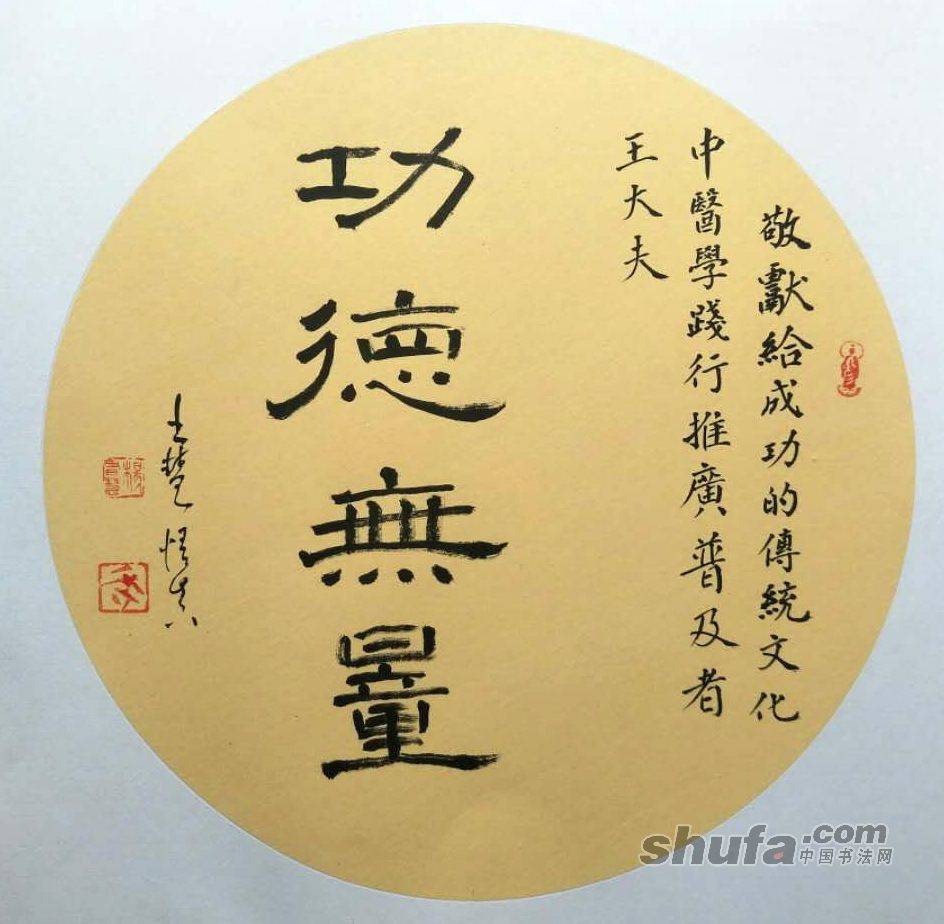 敬獻給成功的傳統文化
中醫學踐行推廣普及者
王大夫
功德無量
shufa.com
中国书法网